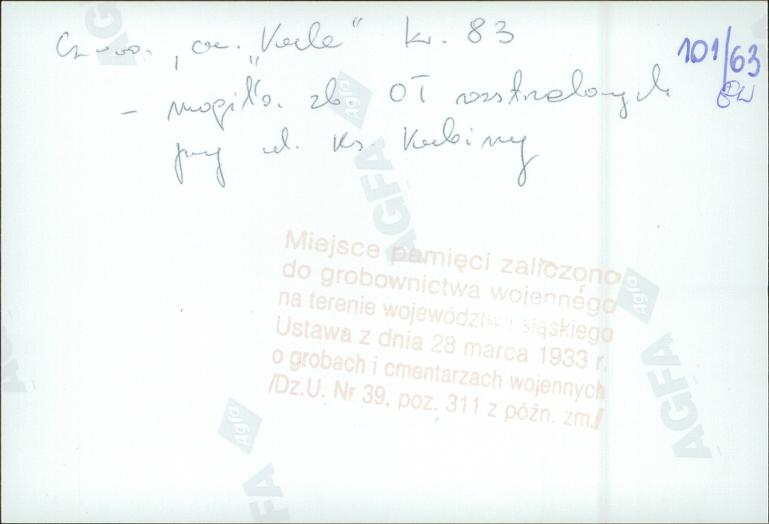 Cz-wa. , cm. "Kule" kw. 83
101/63
- mogiła zb. OT rozstrzelanych
przy ul. Ks. Kubiny
Miejsce pamięci zaliczono
do grobownictwa wojennego
na terenie województwa śląskiego
Ustawa z dnia 28 marca 1933 r.
o grobach i cmentarzach wojennych
/Dz.U. Nr 39, poz. 311 z późn. zm./
Agfa
AGFA
Agfa
AGFA
Agfa
AGFA